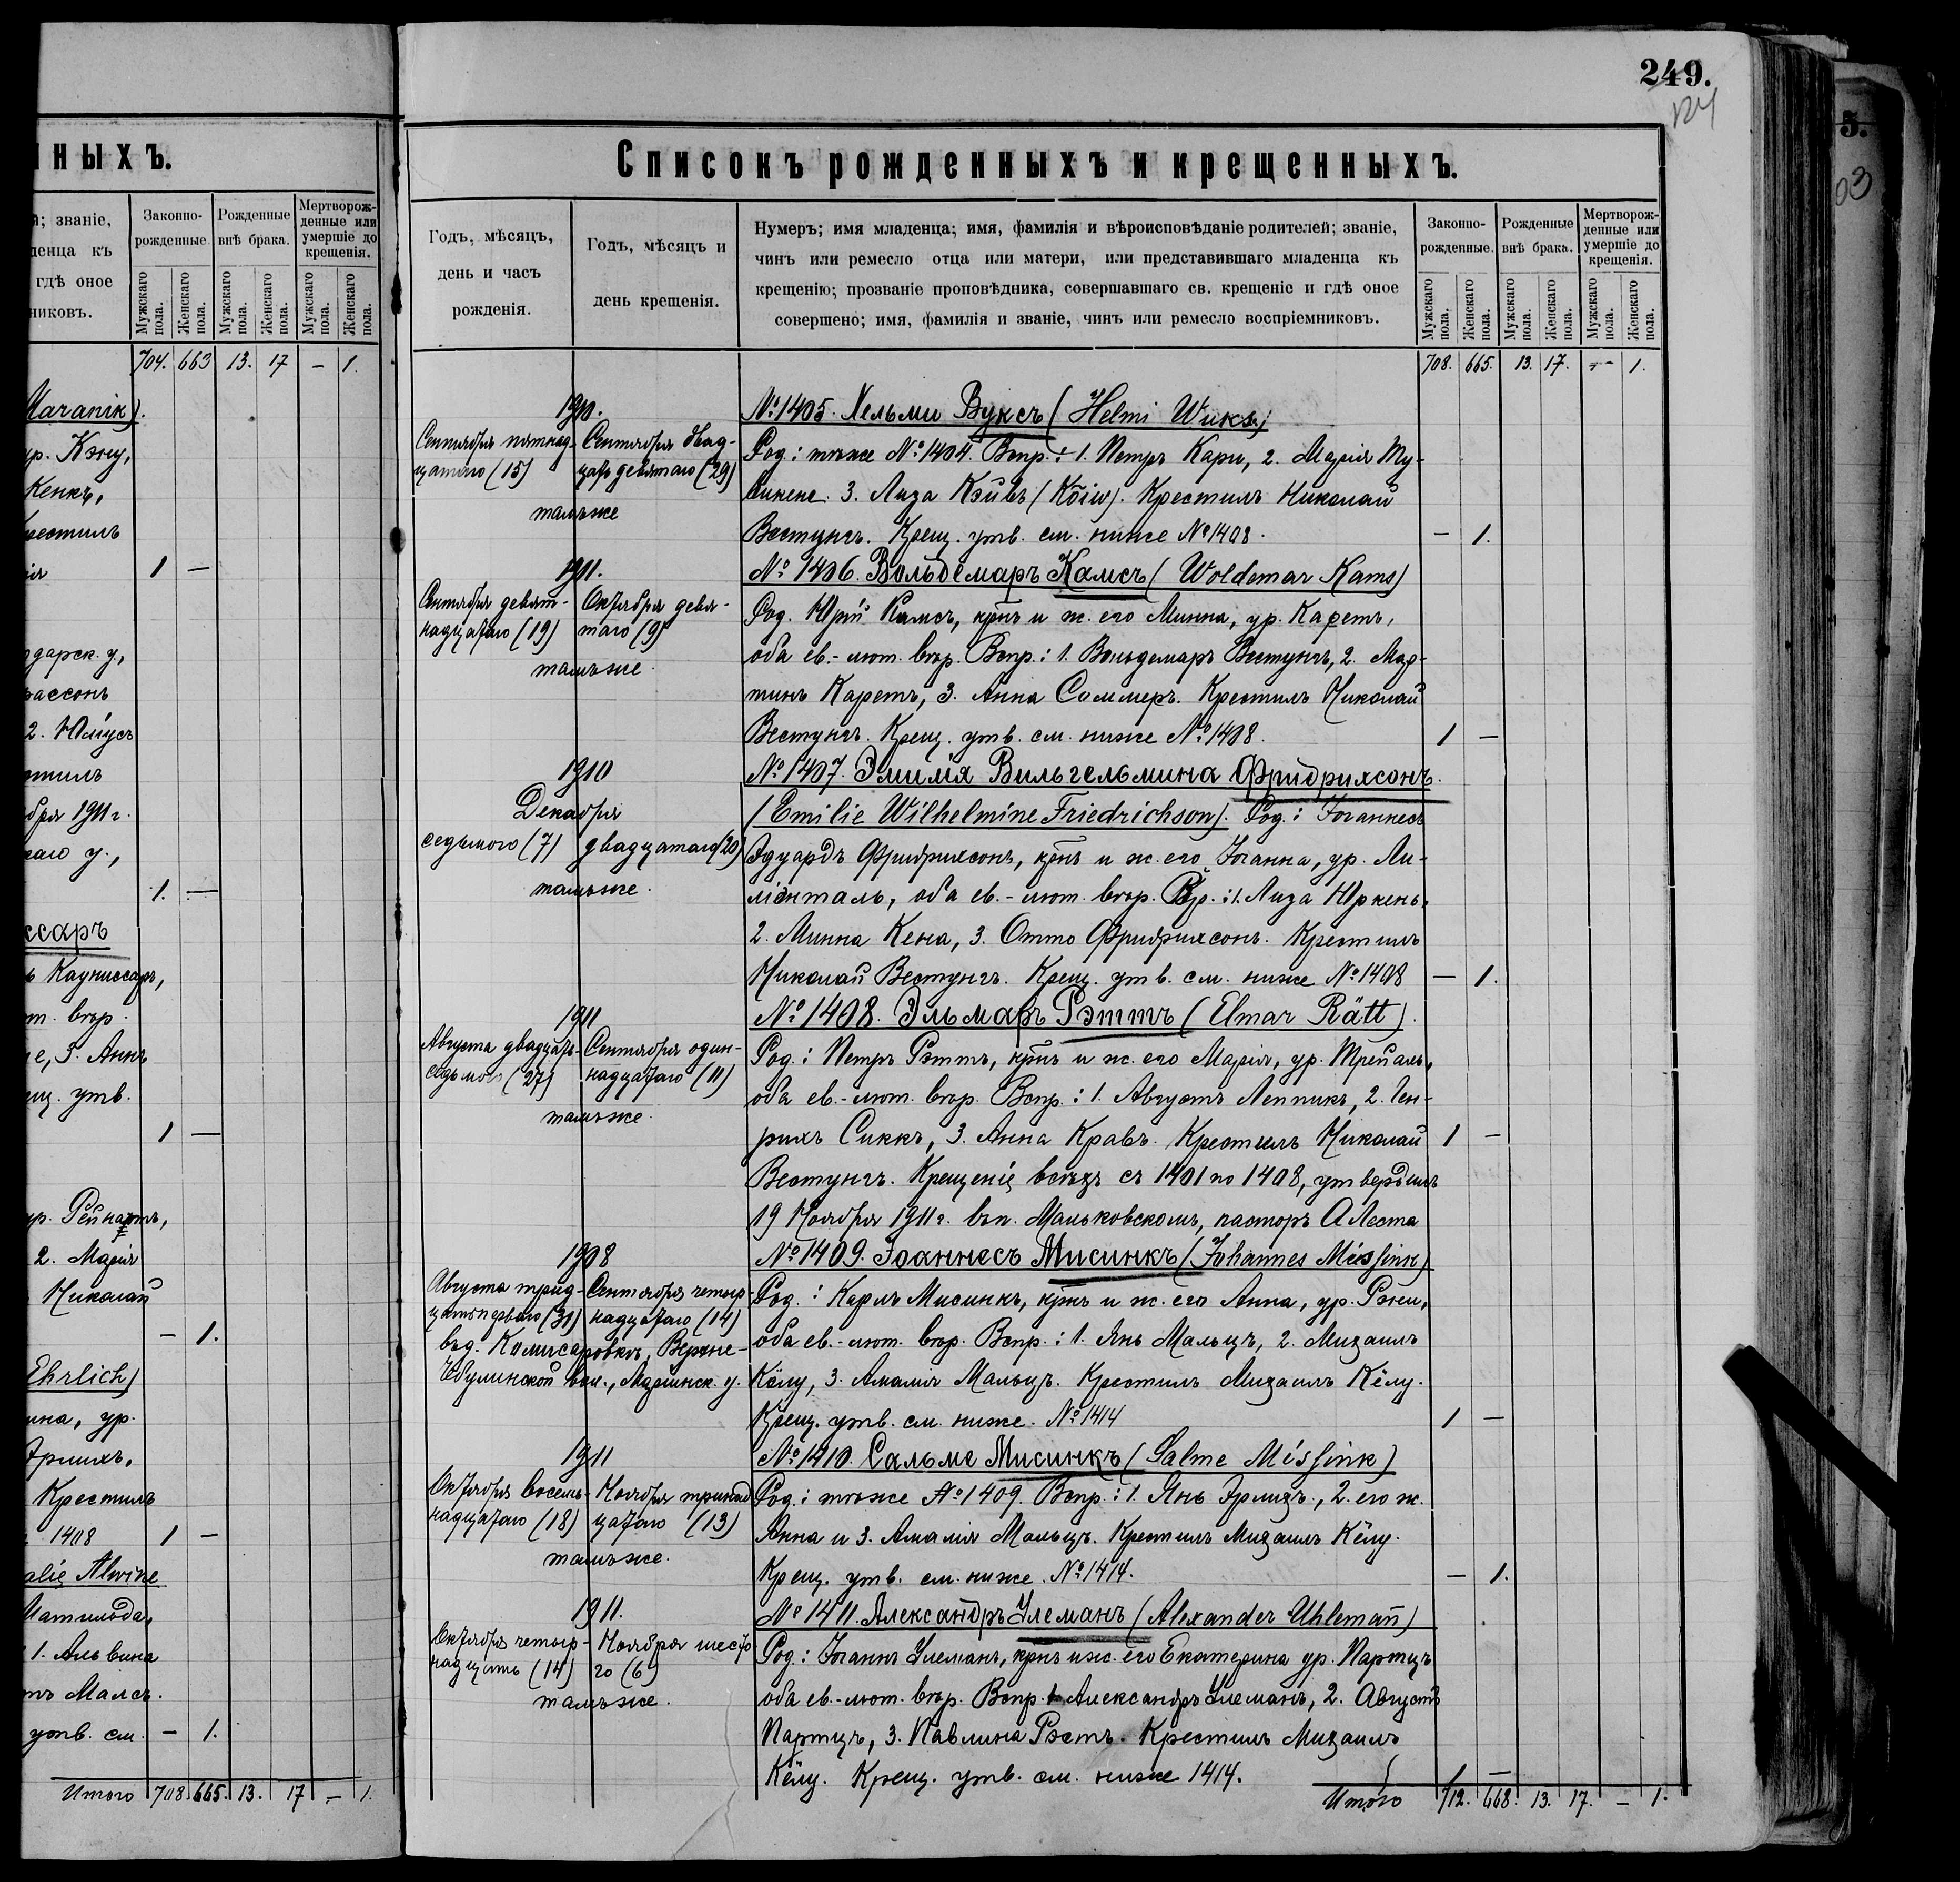 нныхъ.
й; званіе,
денца къ
гдѣ оное
никовъ.
Законно-
рожденные.
Рожденные
внѣ брака.
Мертворож-
денные или
умершіе до
крещенія.
Мужскаго пола.
Женскаго пола.
Мужскаго пола.
Женскаго пола.
Мужскаго пола.
Женскаго пола.
704. 663 13. 17 — 1.
Maranik).
ур. Кэну,
Кенкъ,
рестилъ
1 —
дарск. у,
рассонъ
2. Юліусъ
тилъ
бря 1911 г.
каго у.,
1. —
ссаръ
ъ Кауниссаръ,
т. вѣр.
е, 3. Анна
ещ. утв.
1 —
ур. Рейнартъ,
2. Марія
Николай
— 1.
Ehrlich)
ина, ур.
Эрлихъ,
Крестилъ
1408 1 —
alie Alwine
Матильда,
1. Альвина
тъ Малсъ.
утв. см. — 1.
Итого 708. 665. 13. 17 — 1.
249.
124
5.
03
Списокъ рожденныхъ и крещенныхъ.
Годъ, мѣсяцъ,
день и часъ
рожденія.
Годъ, мѣсяцъ и
день крещенія.
Нумеръ; имя младенца; имя, фамилія и вѣроисповѣданіе родителей; званіе,
чинъ или ремесло отца или матери, или представившаго младенца къ
крещенію; прозваніе проповѣдника, совершавшаго св. крещеніе и гдѣ оное
совершено; имя, фамилія и званіе, чинъ или ремесло воспріемниковъ.
Законно-
рожденные.
Рожденные
внѣ брака.
Мертворож-
денные или
умершіе до
крещенія.
Мужскаго пола.
Женскаго пола.
Мужскаго пола.
Женскаго пола.
Мужскаго пола.
Женскаго пола.
708. 665. 13. 17. — 1.
1910.
Сентября пятнад-
цатаго (15)
Сентября двад-
цать девятаго (29)
тамъже
№ 1405. Хельми Вуксъ (Helmi Wuks.)
Род.: тѣже № 1404. Вспр.: 1. Петръ Кари, 2. Марія Му-
сикене. 3. Лиза Кэйвъ (Kõiw). Крестилъ Николай
Вестунгъ. Крещ. утв. см. ниже № 1408. — 1.
1911.
Сентября девят-
надцатаго (19)
Октября девя-
таго (9)
тамъже.
№ 1406. Вольдемаръ Камсъ (Woldemar Kams)
Род. Юрій Камсъ, крнъ и ж. его Минна, ур. Каретъ,
оба ев.-лют. вѣр. Вспр.: 1. Вольдемаръ Вестунгъ, 2. Мар-
тинъ Каретъ, 3. Анна Соммеръ. Крестилъ Николай
Вестунгъ. Крещ. утв. см. ниже № 1408. 1 —
1910
Декабря
седьмого (7) двадцатаго (20)
тамъже.
№ 1407. Эмилія Вильгельмина Фридрихсонъ.
(Emilie Wilhelmine Friedrichson). Род.: Іоганнесъ
Эдуардъ Фридрихсонъ, крнъ и ж. его Іоганна, ур. Ли-
ліенталь, оба ев.-лют. вѣр. Впр.: 1. Лиза Юркень,
2. Минна Кена, 3. Отто Фридрихсонъ. Крестилъ
Николай Вестунгъ. Крещ. утв. см. ниже № 1408 — 1.
1911
Августа двадцать-
седьмого (27)
Сентября один-
надцатаго (11)
тамъже.
№ 1408. Эльмаръ Рэттъ (Elmar Rätt).
Род.: Петръ Рэттъ, крнъ и ж. его Марія, ур. Трейаль,
оба ев.-лют. вѣр. Вспр.: 1. Августъ Леппикъ, 2. Ген-
рихъ Сиккъ, 3. Анна Кравъ. Крестилъ Николай 1 —
Вестунгъ. Крещеніе всѣхъ съ 1401 по 1408, утвердилъ
19 Ноября 1911 г. въ п. Маньковскомъ, пасторъ А Леста
1908
Августа трид-
цатьперваго (31)
Сентября четыр-
надцатаго (14)
въ д. Комисаровкѣ, Верхне-
Чебулинской вол., Маріинск. у.
№ 1409. Іоаннесъ Мисинкъ (Johannes Missink)
Род.: Карлъ Мисинкъ, крнъ и ж. его Анна, ур. Рэки,
оба ев.-лют. вѣр. Вспр.: 1. Янъ Мальцъ, 2. Михаилъ
Кёлу, 3. Амалія Мальцъ. Крестилъ Михаилъ Кёлу.
Крещ. утв. см. ниже. № 1414 1 —
1911
Октября восемь-
надцатаго (18)
Ноября тринад
цатаго (13)
тамъже.
№ 1410. Сальме Мисинкъ (Salme Missink)
Род.: тѣже № 1409. Вспр.: 1. Янъ Эрлихъ, 2. его ж.
Анна и 3. Амалія Мальцъ. Крестилъ Михаилъ Кёлу.
Крещ. утв. см. ниже. № 1414. — 1.
1911.
Октября четыр-
надцать (14)
Ноября шесто
го (6)
тамъже.
№ 1411. Александръ Улеманъ (Alexander Uhlemañ)
Род.: Іоганнъ Улеманъ, крнъ и ж. его Екатерина ур. Партцъ
оба ев.-лют. вѣр. Вспр. 1. Александръ Улеманъ, 2. Августъ
Партцъ, 3. Павлина Рэстъ. Крестилъ Михаилъ
Кёлу. Крещ. утв. см. ниже 1414. 1 —
Итого 712. 668. 13. 17. — 1.